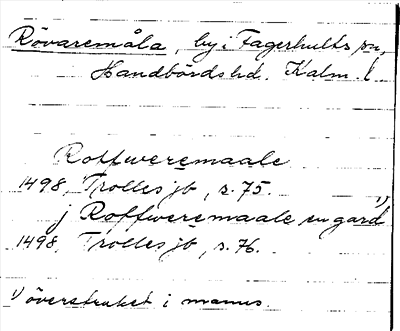 Rövaremåla, by i Fagerhults sn,
Handbörds hd. Kalm. l.
Roffweremaale
1498, Trolles jb, s. 75.
j Roffweremaale en gard 1)
1498, Trolles jb, s. 76.
1) överstruket i manus.